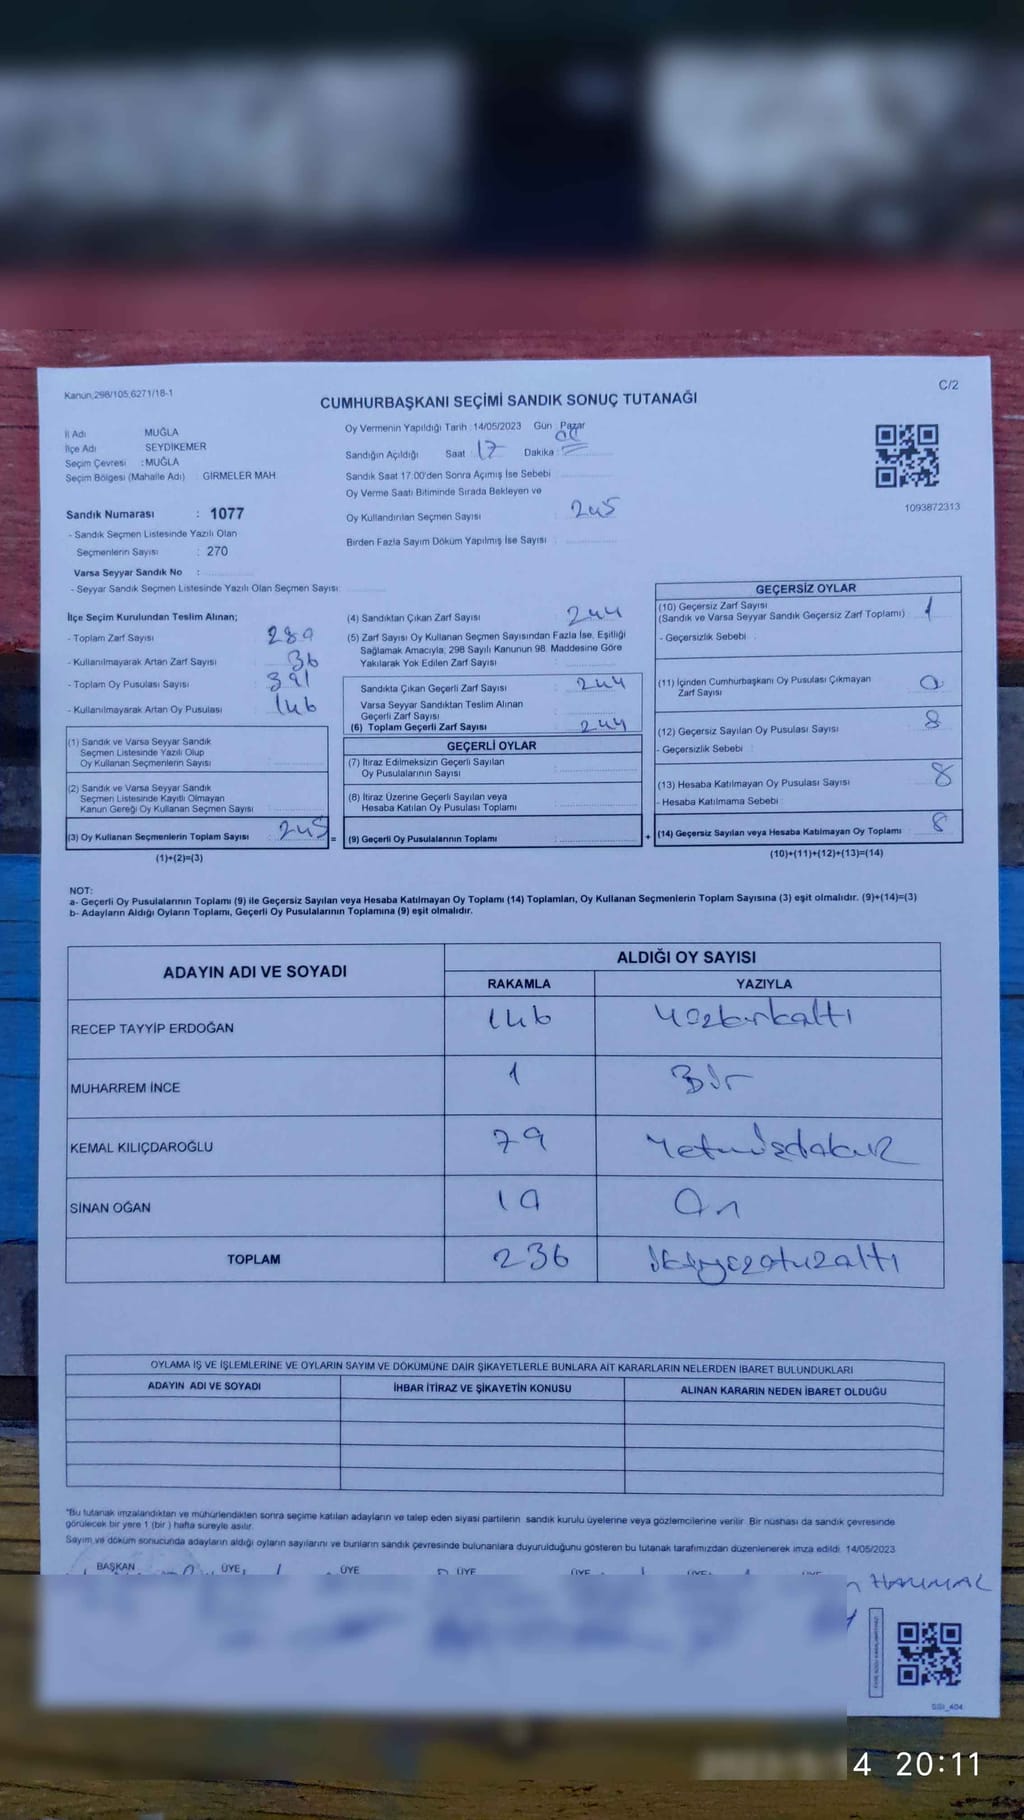 Kanun,298/105,6271/18-1
C/2
CUMHURBAŞKANI SEÇİMİ SANDIK SONUÇ TUTANAĞI
İl Adı MUĞLA
İlçe Adı SEYDİKEMER
Seçim Çevresi : MUĞLA
Seçim Bölgesi (Mahalle Adı) GİRMELER MAH
Sandık Numarası : 1077
- Sandık Seçmen Listesinde Yazılı Olan
Seçmenlerin Sayısı : 270
Varsa Seyyar Sandık No :
- Seyyar Sandık Seçmen Listesinde Yazılı Olan Seçmen Sayısı:
Oy Vermenin Yapıldığı Tarih : 14/05/2023 Gün : Pazar
Sandığın Açıldığı Saat : 17 Dakika : 00
Sandık Saat 17.00'den Sonra Açımış İse Sebebi
Oy Verme Saati Bitiminde Sırada Bekleyen ve
Oy Kullandırılan Seçmen Sayısı : 245
Birden Fazla Sayım Döküm Yapılmış İse Sayısı :
1093872313
İlçe Seçim Kurulundan Teslim Alınan;
- Toplam Zarf Sayısı 280
- Kullanılmayarak Artan Zarf Sayısı 36
- Toplam Oy Pusulası Sayısı 391
- Kullanılmayarak Artan Oy Pusulası 146
(1) Sandık ve Varsa Seyyar Sandık
Seçmen Listesinde Yazılı Olup
Oy Kullanan Seçmenlerin Sayısı
(2) Sandık ve Varsa Seyyar Sandık
Seçmen Listesinde Kayıtlı Olmayan
Kanun Gereği Oy Kullanan Seçmen Sayısı
(3) Oy Kullanan Seçmenlerin Toplam Sayısı : 245
(1)+(2)=(3)
(4) Sandıktan Çıkan Zarf Sayısı : 244
(5) Zarf Sayısı Oy Kullanan Seçmen Sayısından Fazla İse, Eşitliği
Sağlamak Amacıyla, 298 Sayılı Kanunun 98. Maddesine Göre
Yakılarak Yok Edilen Zarf Sayısı
Sandıkta Çıkan Geçerli Zarf Sayısı : 244
Varsa Seyyar Sandıktan Teslim Alınan
Geçerli Zarf Sayısı
(6) Toplam Geçerli Zarf Sayısı 244
GEÇERLİ OYLAR
(7) İtiraz Edilmeksizin Geçerli Sayılan
Oy Pusulalarının Sayısı
(8) İtiraz Üzerine Geçerli Sayılan veya
Hesaba Katılan Oy Pusulası Toplamı
= (9) Geçerli Oy Pusulalarının Toplamı :
GEÇERSİZ OYLAR
(10) Geçersiz Zarf Sayısı
(Sandık ve Varsa Seyyar Sandık Geçersiz Zarf Toplamı) : 1
- Geçersizlik Sebebi :
(11) İçinden Cumhurbaşkanı Oy Pusulası Çıkmayan
Zarf Sayısı 0
(12) Geçersiz Sayılan Oy Pusulası Sayısı : 8
- Geçersizlik Sebebi :
(13) Hesaba Katılmayan Oy Pusulası Sayısı : 8
- Hesaba Katılmama Sebebi :
+ (14) Geçersiz Sayılan veya Hesaba Katılmayan Oy Toplamı : 8
(10)+(11)+(12)+(13)=(14)
NOT:
a- Geçerli Oy Pusulalarının Toplamı (9) ile Geçersiz Sayılan veya Hesaba Katılmayan Oy Toplamı (14) Toplamları, Oy Kullanan Seçmenlerin Toplam Sayısına (3) eşit olmalıdır. (9)+(14)=(3)
b- Adayların Aldığı Oyların Toplamı, Geçerli Oy Pusulalarının Toplamına (9) eşit olmalıdır.
ADAYIN ADI VE SOYADI ALDIĞI OY SAYISI
RAKAMLA YAZIYLA
RECEP TAYYİP ERDOĞAN 146 Yüzkırkaltı
MUHARREM İNCE 1 Bir
KEMAL KILIÇDAROĞLU 79 Yetmişdokuz
SİNAN OĞAN 10 On
TOPLAM 236 ikiyüzotuzaltı
OYLAMA İŞ VE İŞLEMLERİNE VE OYLARIN SAYIM VE DÖKÜMÜNE DAİR ŞİKAYETLERLE BUNLARA AİT KARARLARIN NELERDEN İBARET BULUNDUKLARI
ADAYIN ADI VE SOYADI İHBAR İTİRAZ VE ŞİKAYETİN KONUSU ALINAN KARARIN NEDEN İBARET OLDUĞU
"Bu tutanak imzalandıktan ve mühürlendikten sonra seçime katılan adayların ve talep eden siyasi partilerin sandık kurulu üyelerine veya gözlemcilerine verilir. Bir nüshası da sandık çevresinde
görülecek bir yere 1 (bir ) hafta süreyle asılır.
Sayım ve döküm sonucunda adayların aldığı oyların sayılarını ve bunların sandık çevresinde bulunanlara duyurulduğunu gösteren bu tutanak tarafımızdan düzenlenerek imza edildi. 14/05/2023
BAŞKAN ÜYE ÜYE ÜYE ÜYE ÜYE ÜYE
SSI_404
4 20:11